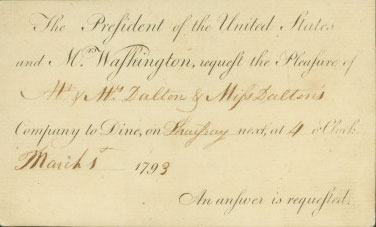 The President of the United States
and Mrs. Washington, request the Pleasure of
Mr. & Mrs. Dalton & Miss Dalton's
Company to Dine, on Thursday next, at 4 o'Clock.
March 1st 1793
An answer is requested.